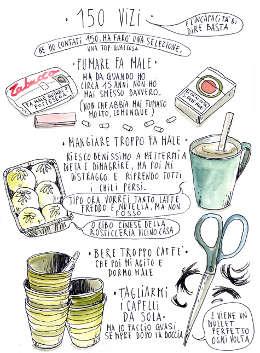 • 150 VIZI •
E L'INCAPACITÀ DI
DIRE BASTA
NE HO CONTATI 150, MA FARÒ UNA SELEZIONE,
UNA TOP QUALCOSA
• FUMARE FA MALE •
MA DA QUANDO HO
CIRCA 15 ANNI NON HO
MAI SMESSO DAVVERO.
(NON CHE ABBIA MAI FUMATO
MOLTO, COMUNQUE)
Tabacco
• MANGIARE TROPPO FA MALE •
RIESCO BENISSIMO A METTERMI A
DIETA E DIMAGRIRE, MA POI MI
DISTRAGGO E RIPRENDO TUTTI
I CHILI PERSI.
TIPO ORA VORREI TANTO LATTE
FREDDO E NUTELLA, MA NON
POSSO
O CIBO CINESE DELLA
ROSTICCERIA VICINO CASA
• BERE TROPPO CAFFÈ •
CHE POI MI AGITO E
DORMO MALE
• TAGLIARMI
I CAPELLI
DA SOLA •
MA LO FACCIO QUASI
SEMPRE DOPO LA DOCCIA
E VIENE UN
MULLET
PERFETTO
OGNI VOLTA